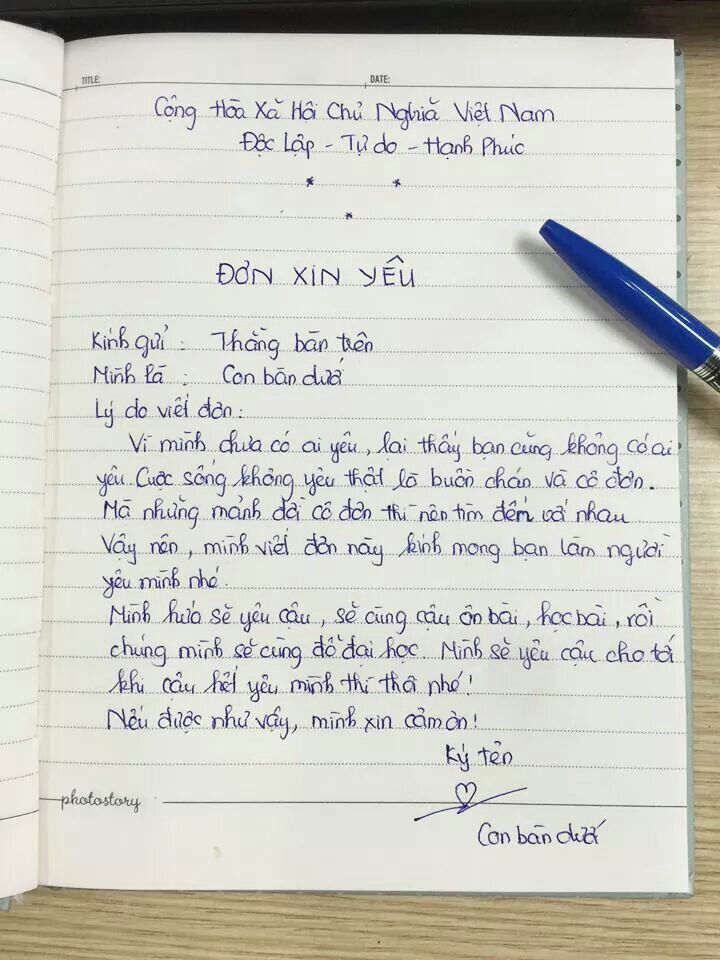 TITLE: DATE:
Cộng Hòa Xã Hội Chủ Nghĩa Việt Nam
Độc Lập - Tự do - Hạnh Phúc
* *
*
ĐƠN XIN YÊU
Kính gửi : Thằng bàn trên
Mình là : Con bàn dưới
Lý do viết đơn :
Vì mình chưa có ai yêu, lại thấy bạn cũng không có ai
yêu. Cuộc sống không yêu thật là buồn chán và cô đơn.
Mà những mảnh đời cô đơn thì nên tìm đến với nhau
Vậy nên, mình viết đơn này kính mong bạn làm người
yêu mình nhé.
Mình hứa sẽ yêu cậu, sẽ cùng cậu ôn bài, học bài, rồi
chúng mình sẽ cùng đỗ đại học. Mình sẽ yêu cậu cho tới
khi cậu hết yêu mình thì thôi nhé!
Nếu được như vậy, mình xin cảm ơn!
Ký tên
photostory
Con bàn dưới